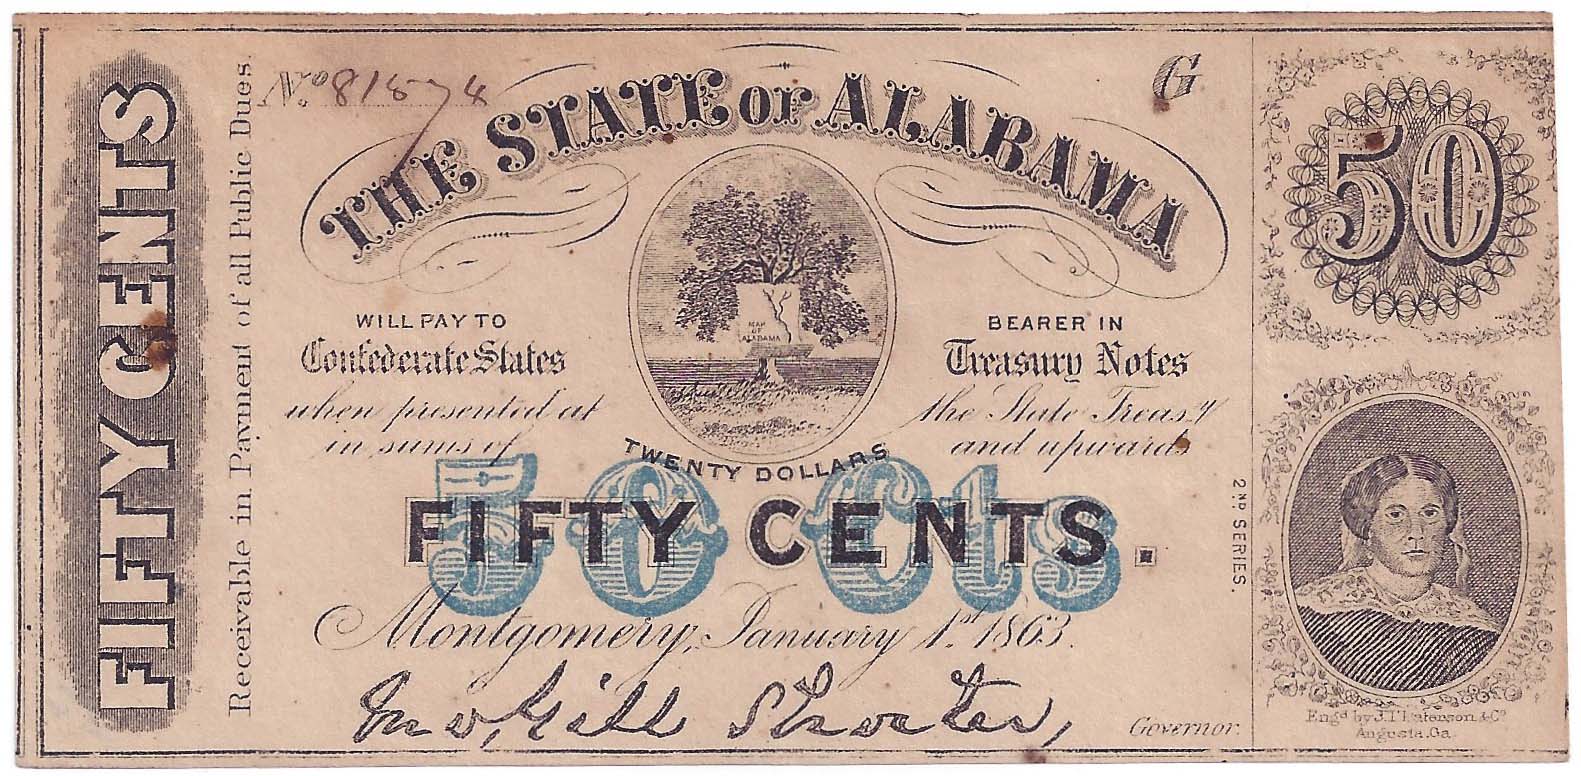 FIFTY CENTS
Receivable in Payment of all Public Dues.
No. 81574
G
THE STATE OF ALABAMA
50
WILL PAY TO
BEARER IN
MAP
OF
ALABAMA
Confederate States
Treasury Notes
when presented at
the State Treasy
in sums of
TWENTY DOLLARS
and upwards
50 Cts
FIFTY CENTS.
2ND SERIES.
Montgomery, January 1st 1863.
Jno. Gill Shorter,
Governor.
Engd by J.T. Paterson & Co
Augusta, Ga.